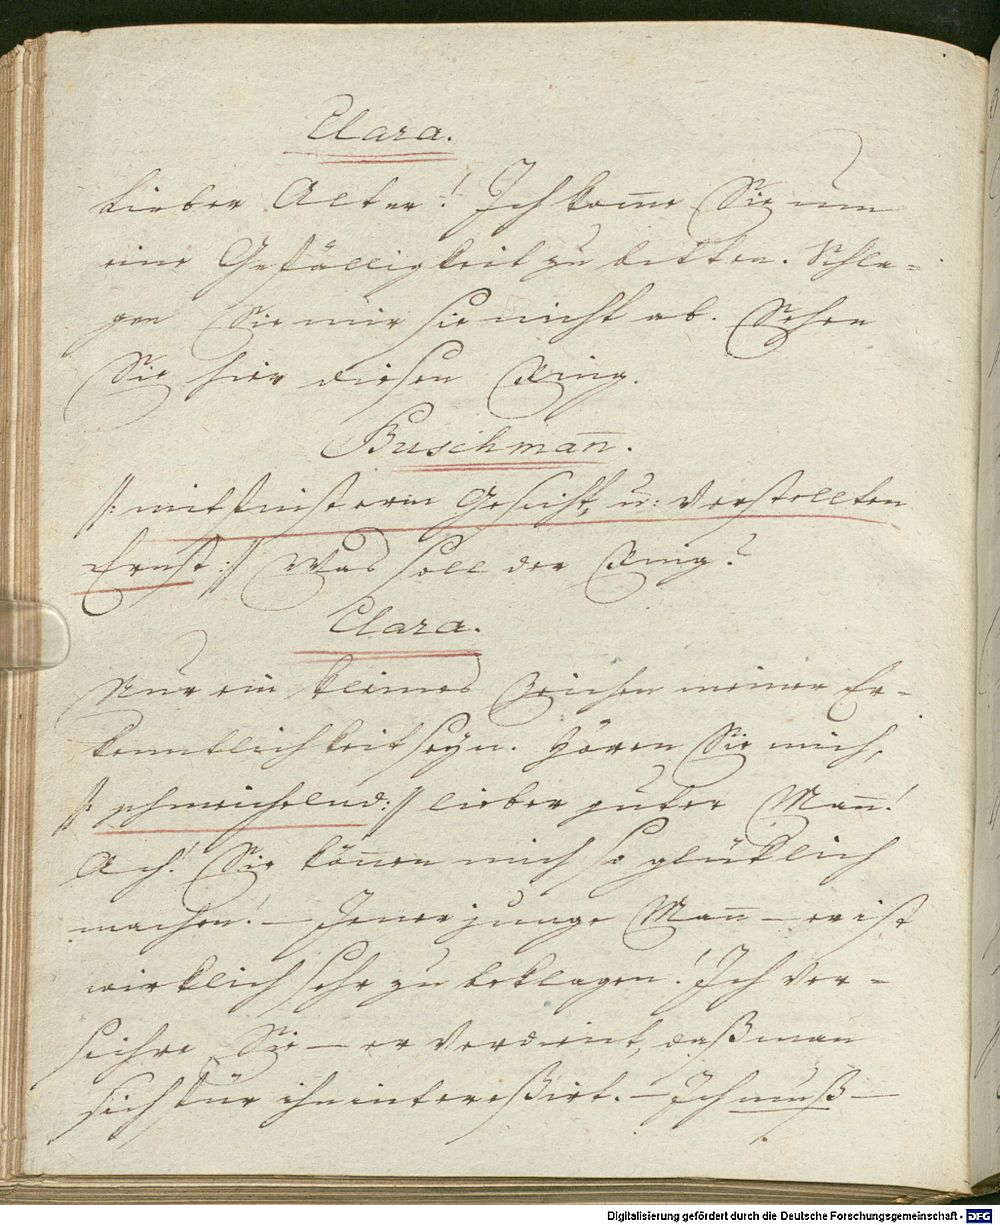 Clara.
Lieber Alter! Ich kom̄e Sie um
eine Gefälligkeit zu bitten. Schla-
gen Sie mir sie nicht ab. Sehen
Sie hier diesen Ring.
Buschman̄.
/: mit finsterm Gesicht, u: verstellten
Ernst :/ Was soll der Ring?
Clara.
Nur ein kleines Zeichen meiner Er-
kenntlichkeit seyn. Hören Sie mich,
/: schmeichelnd :/ lieber guter Man̄!
Ach! Sie kön̄en mich so glüklich
machen! — Jener junge Man̄ — er ist
wirklich sehr zu beklagen! Ich ver-
sichre Sie — er verdient, daß man
sich für ihn intereßirt. — Ich muß —
Digitalisierung gefördert durch die Deutsche Forschungsgemeinschaft - DFG